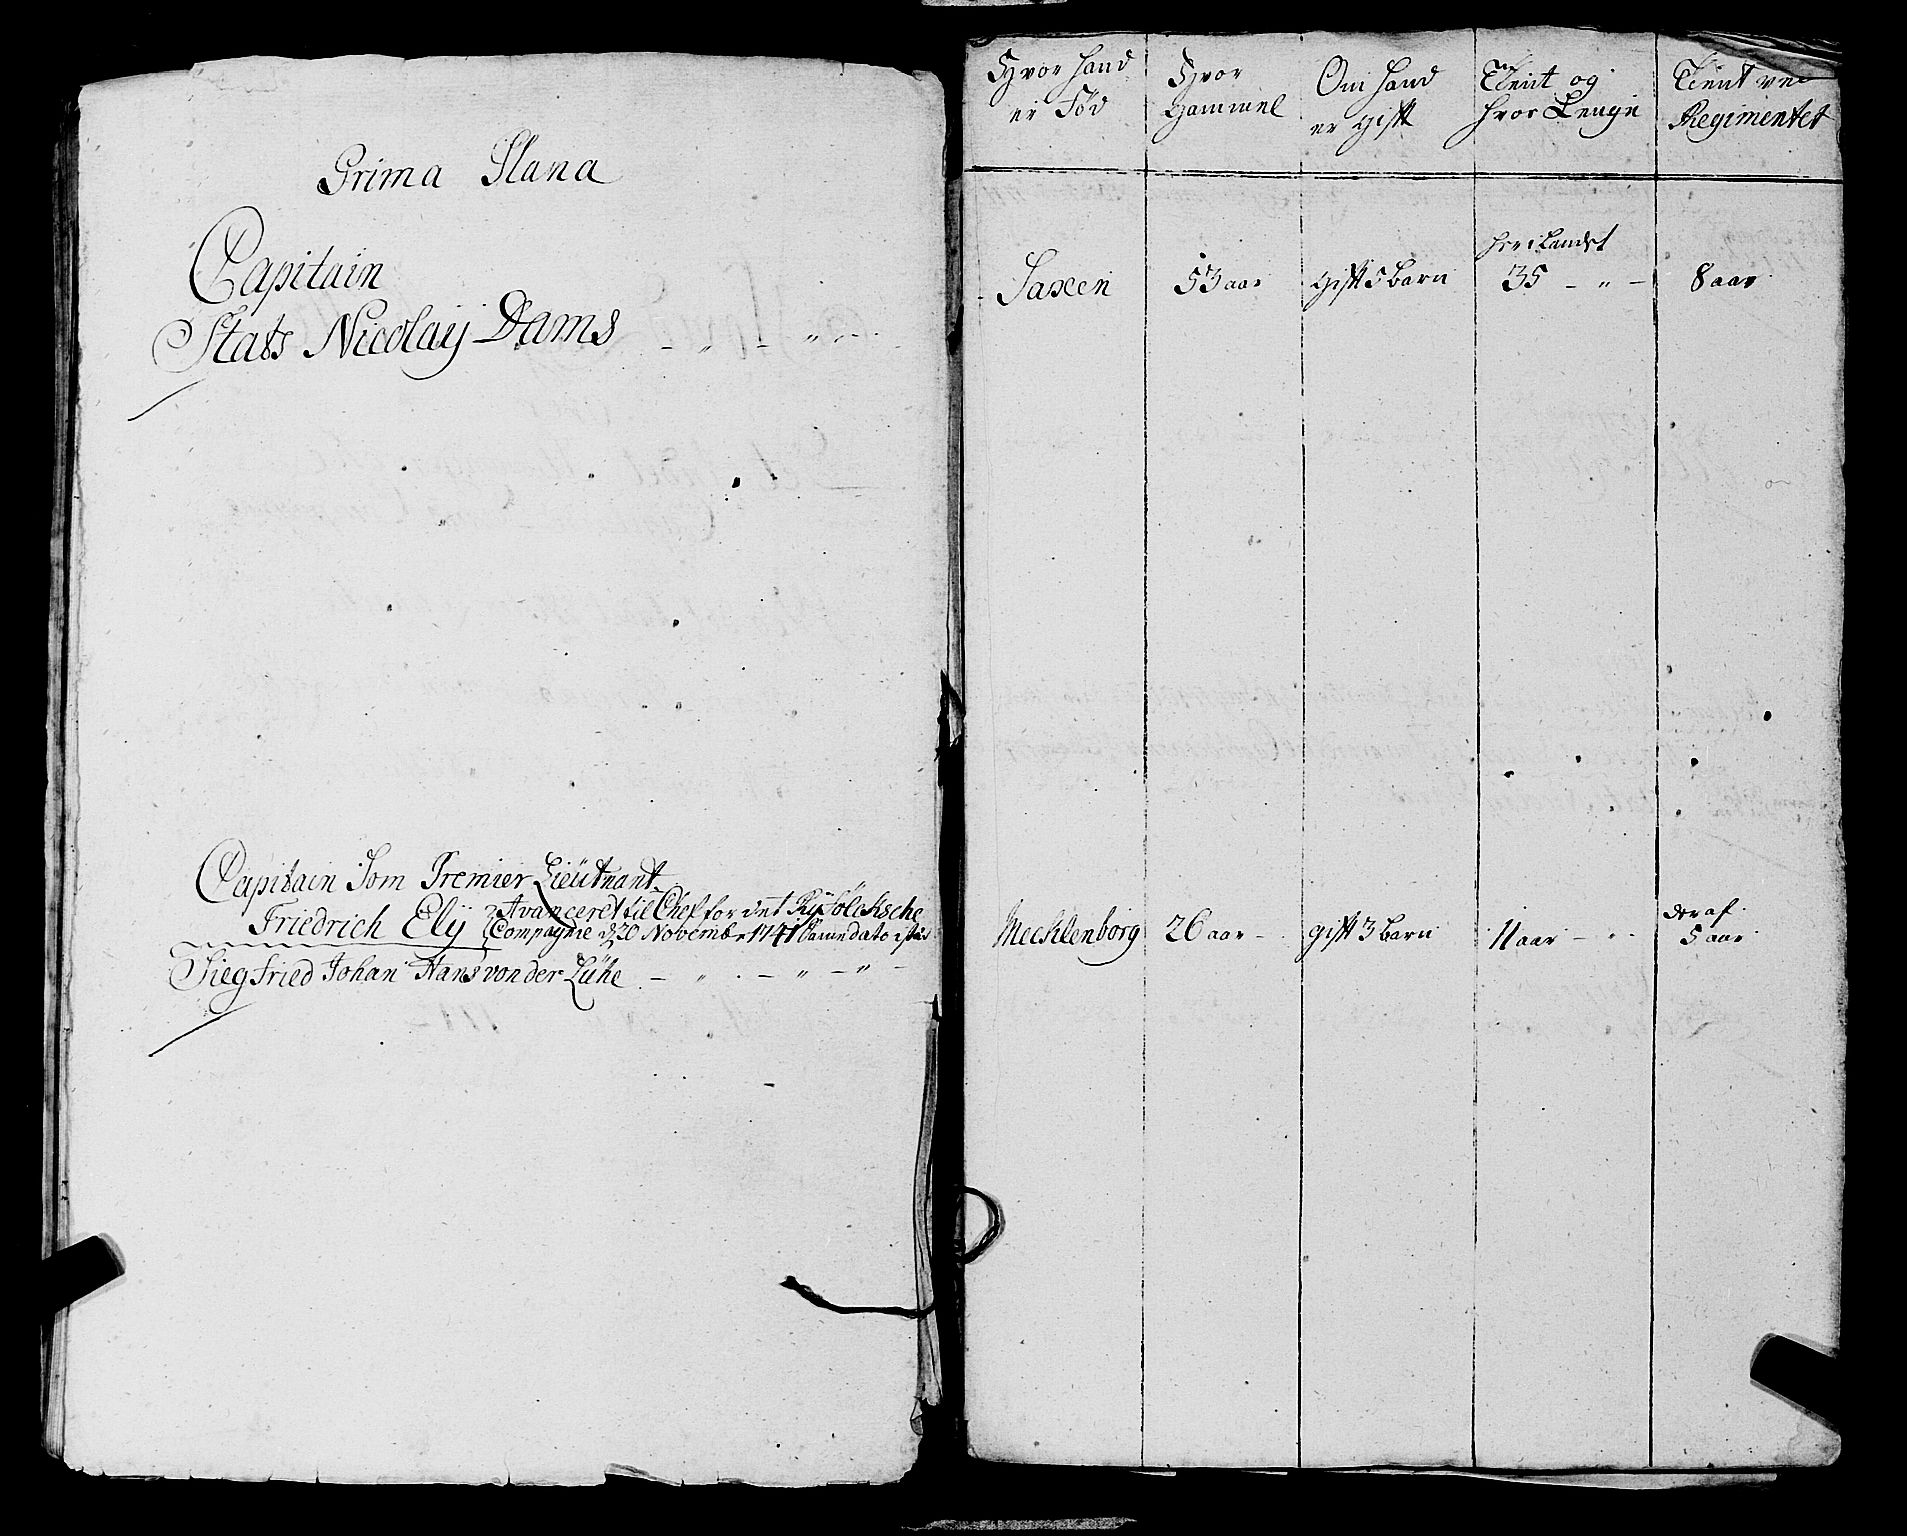 Prima Plana
Capitain
Stats Nicolaij Dams
Capitain Som Premier Lieütnant
Friedrich Elÿ Avanceret til Chef for det Ryfölcksche
Compagnie d 20 Novembr 1741 Samme dato istæd
Siegfried Johan Hans von der Lühe
Hvor hand er Fød
Hvor Gammel
Om hand er gift
Tient og hvor Lenge
Tient ve Regimentet
Saxen 53 aar gift 5 barn her i Landet 35 8 aar
Mecklenborg 26 aar gift 3 barn 11 aar der af 5 aar